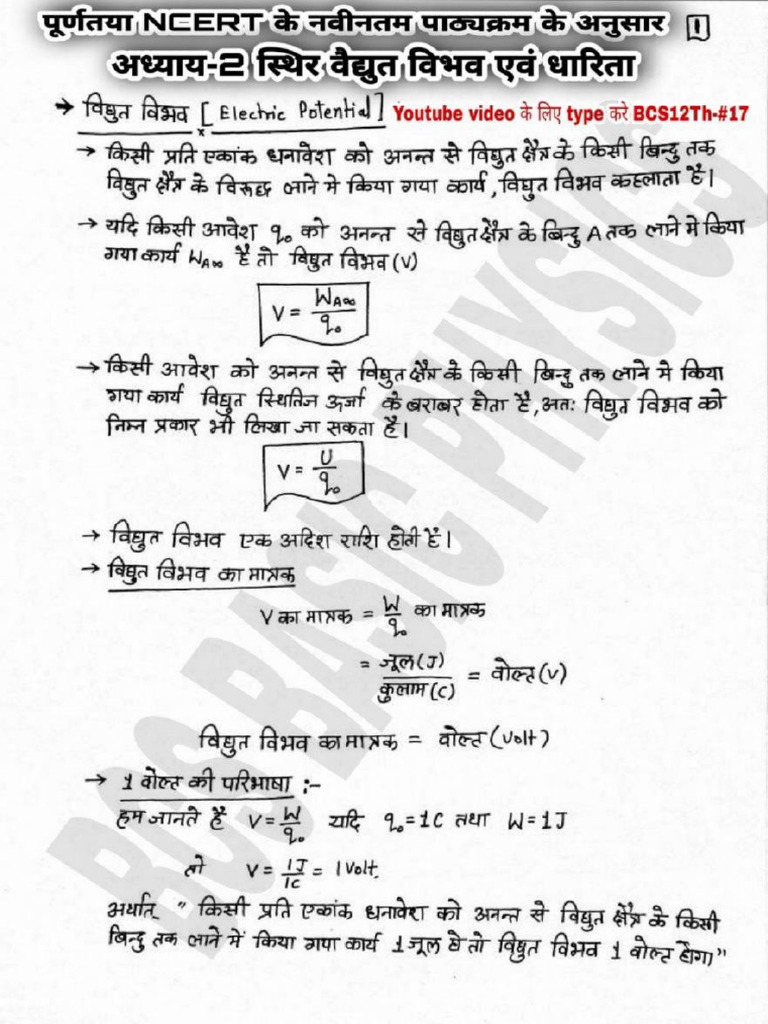 पूर्णतया NCERT के नवीनतम पाठ्यक्रम के अनुसार 1
अध्याय-2 स्थिर वैद्युत विभव एवं धारिता
→ विद्युत विभव [Electric Potential] Youtube video के लिए type करे BCS12Th-#17
→ किसी प्रति एकांक धनावेश को अनन्त से विद्युत क्षेत्र के किसी बिन्दु तक
विद्युत क्षेत्र के विरूद्ध लाने मे किया गया कार्य, विद्युत विभव कहलाता है।
→ यदि किसी आवेश q₀ को अनन्त से विद्युत क्षेत्र के बिन्दु A तक लाने मे किया
गया कार्य W_A∞ है तो विद्युत विभव (V)
V = W_A∞/q₀
→ किसी आवेश को अनन्त से विद्युत क्षेत्र के किसी बिन्दु तक लाने मे किया
गया कार्य विद्युत स्थितिज ऊर्जा के बराबर होता है, अतः विद्युत विभव को
निम्न प्रकार भी लिखा जा सकता है।
V = U/q₀
→ विद्युत विभव एक अदिश राशि होती है।
→ विद्युत विभव का मात्रक
V का मात्रक = W/q₀ का मात्रक
= जूल(J)/कुलाम(C) = वोल्ट(V)
विद्युत विभव का मात्रक = वोल्ट(Volt)
→ 1 वोल्ट की परिभाषा :-
हम जानते हैं V = W/q₀ यदि q₀ = 1C तथा W = 1J
तो V = 1J/1C = 1 Volt.
अर्थात् " किसी प्रति एकांक धनावेश को अनन्त से विद्युत क्षेत्र के किसी
बिन्दु तक लाने में किया गया कार्य 1 जूल हो तो विद्युत विभव 1 वोल्ट होगा"
BCS BASIC PHYSICS®